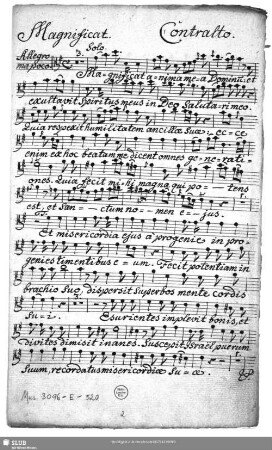 Magnificat. Contralto.
Solo.
Allegro
ma poco
Magnificat anima mea Dominũ: et
exultavit Spiritus meus in Deo Salutari meo.
Quia respexit humilitatem ancillæ Suæ: ec=ce
enim ex hoc beatam me dicent omnes ge=nerati=
ones. Quia fecit mihi magna qui po==tens
est, et San==ctum no==men e=jus.
Et misericordia ejus a progenie in pro
genies timentibus e=um. Fecit potentiam in
brachio Suo, dispersit Superbos mente cordis
Su=i. Esurientes implevit bonis, et
divites dimisit inanes. Suscepit Israel puerum
Suum, recordatus misericordiæ Su=æ.
Mus. 3096-E-520
2
SLUB